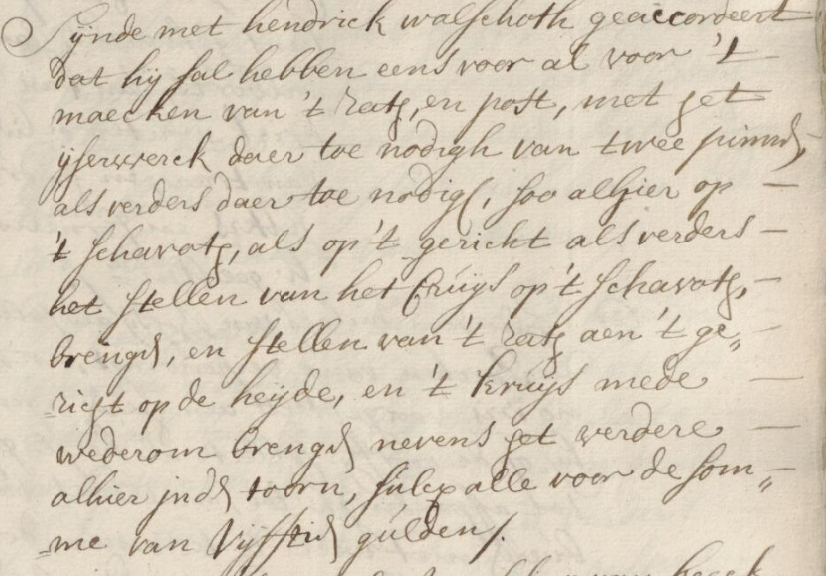 Sijnde met hendrick walschoth geaccordeert
dat hij sal hebben eens voor al voor 't
maecken van 't rath, en post, met het
ijserwerck daer toe nodigh van twee pinnen
als verders daer toe nodigh, soo alhier op
't schavoth, als op 't gericht als verders
het stellen van het Cruijs op 't schavoth,
brengen, en stellen van 't rath aen 't ge„
„richt op de heijde, en 't kruijs mede
wederom brengen nevens het verdere
alhier inden toorn, sulcx alle voor de som„
„me van vijfftich gulden /.